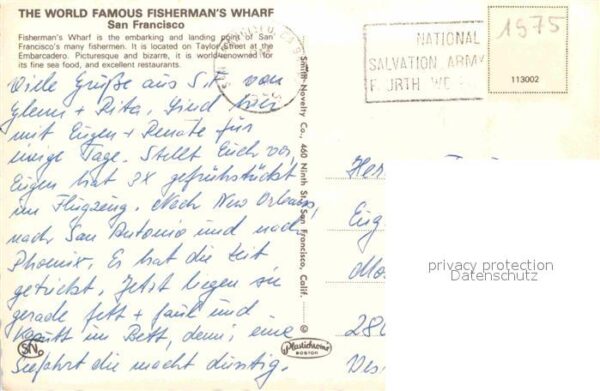 THE WORLD FAMOUS FISHERMAN'S WHARF
San Francisco
Fisherman's Wharf is the embarking and landing point of San
Francisco's many fishermen. It is located on Taylor Street at the
Embarcadero. Picturesque and bizarre, it is world renowned for
its fine sea food, and excellent restaurants.
Viele Grüße aus S.F. von
Glenn + Rita. Sind hier
mit Eugen + Renate für
einige Tage. Stellt Euch vor,
Eugen hat 3X gefrühstückt
im Flugzeug. Nach New Orleans,
nach San Antonio und nach
Phoenix. Es hat die Zeit
gerückt. Jetzt liegen sie
gerade fett + faul und
kaputt im Bett, denn; eine
Seefahrt die macht durstig.
SN
Smith Novelty Co., 460 Ninth St. San Francisco, Calif. ©
Plastichrome
BOSTON
NATIONAL
SALVATION ARMY
1975
113002
Her
Eug
280
privacy protection
Datenschutz